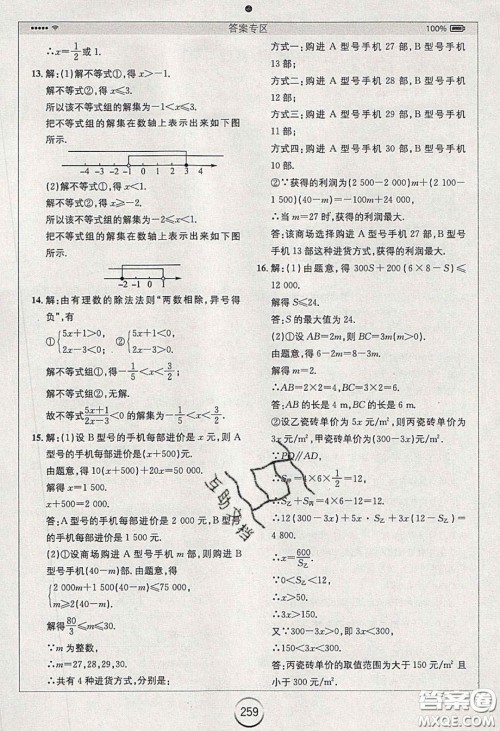 答案专区
100%
∴x=1/2或1.
13.解:(1)解不等式①,得x>-1.
解不等式②,得x≤3.
所以该不等式组的解集为-1<x≤3.
把不等式组的解集在数轴上表示出来如下图
所示.
-4 -3 -2 -1 0 1 2 3 4
(2)解不等式①,得x<1.
解不等式②,得x≥-2.
所以该不等式组的解集为-2≤x<1.
把不等式组的解集在数轴上表示出来如下图
所示.
-2 -1 0 1
14.解:由有理数的除法法则“两数相除,异号得
负”,有
①{5x+1>0, 2x-3<0; ②{5x+1<0, 2x-3>0.
解不等式组①,得-1/5<x<3/2;
解不等式组②,无解.
故不等式(5x+1)/(2x-3)<0的解集为-1/5<x<3/2.
15.解:(1)设B型号的手机每部进价是x元,则A
型号的手机每部进价是(x+500)元.
由题意,得10(x+500)+20x=50 000.
解得x=1 500.
x+500=2 000.
答:A型号的手机每部进价是2 000元,B型号
的手机每部进价是1 500元.
(2)①设商场购进A型号手机m部,则购进B
型号手机(40-m)部.由题意,得
{2000m+1 500(40-m)≤75 000,
m≥2(40-m).
解得80/3≤m≤30.
∵m为整数,
∴m=27,28,29,30.
∴共有4种进货方式,分别是:
方式一:购进A型号手机27部,B型号手机
13部;
方式二:购进A型号手机28部,B型号手机
12部;
方式三:购进A型号手机29部,B型号手机
11部;
方式四:购进A型号手机30部,B型号手机
10部.
②∵获得的利润为(2 500-2 000)m+(2 100-
1 500)(40-m)=-100m+24 000,
∴当m=27时,获得的利润最大.
答:该商场选择购进A型号手机27部,B型号手
机13部这种进货方式,获得的利润最大.
16.解:(1)由题意,得300S+200(6×8-S)≤
12 000.
解得S≤24.
答:S的最大值为24.
(2)①设AB=2m,则BC=3m(m>0).
由题意,得6-2m=8-3m.
解得m=2.
∴AB=2×2=4,BC=3×2=6.
答:AB的长是4 m,BC的长是6 m.
②设乙瓷砖单价为5x元/m²,则丙瓷砖单价为
3x元/m²,甲瓷砖单价为(300-3x)元/m².
∵PQ∥AD,
∴S甲=4×6×1/2=12.
∴S乙+S丙=4×6-12=12.
∴12(300-3x)+5x·S乙+3x(12-S乙)=
4 800.
∴x=600/S乙.
∵0<S乙<12,
∴x>50.
∴3x>150.
又∵300-3x>0,即3x<300.
∴150<3x<300.
答:丙瓷砖单价的取值范围为大于150元/m²且
小于300元/m².
259
互助文档
答案圈
MXQE.COM